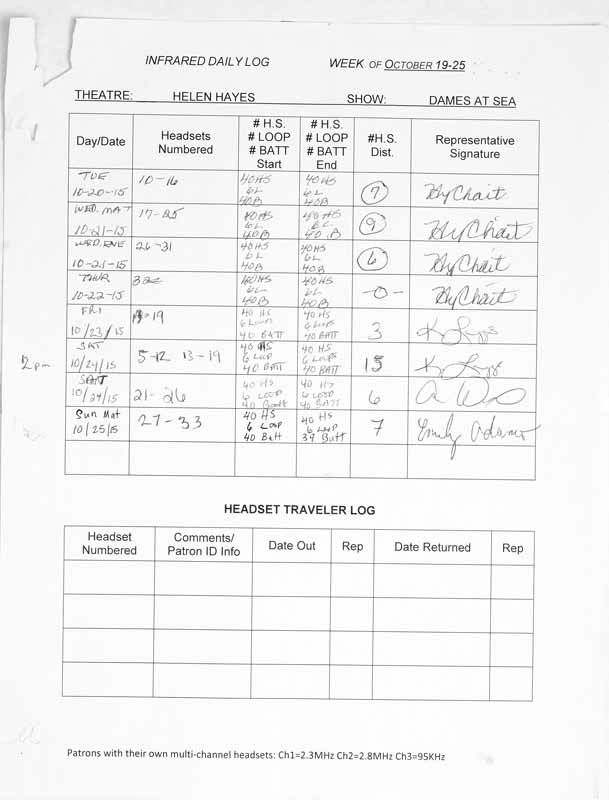 INFRARED DAILY LOG WEEK OF OCTOBER 19-25
THEATRE: HELEN HAYES SHOW: DAMES AT SEA
Day/Date Headsets Numbered # H.S. # LOOP # BATT Start # H.S. # LOOP # BATT End #H.S. Dist. Representative Signature
TUE 10-20-15 10-16 40 HS 6L 40B 40 HS 6L 40B 7 HyChait
WED. MAT 10-21-15 40 HS 6L 40B 40 HS 6L 40.B 9 HyChait
WED. EVE 10-21-15 26-31 40 HS 6L 40B 40 HS 6L 40B 6 HyChait
THUR 10-22-15 40 HS 6L 40B 40 HS 6L 40B -0- HyChait
FRI 10/23/15 40 HS 6 LOOPS 40 BATT 40 HS 6 LOOPS 40 BATT 3
2pm SAT 10/24/15 5-12 13-19 40 HS 6 LOOP 40 BATT 40 HS 6 LOOPS 40 BATT 15
SAT 10/24/15 21-26 40 HS 6 LOOP 40 BATT 40 HS 6 LOOP 40 BATT 6
Sun Mat 10/25/15 27-33 40 HS 6 LOOP 40 Batt 40 HS 6 LOOP 39 Batt 7 Emily Adams
HEADSET TRAVELER LOG
Headset Numbered Comments/ Patron ID Info Date Out Rep Date Returned Rep
Patrons with their own multi-channel headsets: Ch1=2.3MHz Ch2=2.8MHz Ch3=95KHz